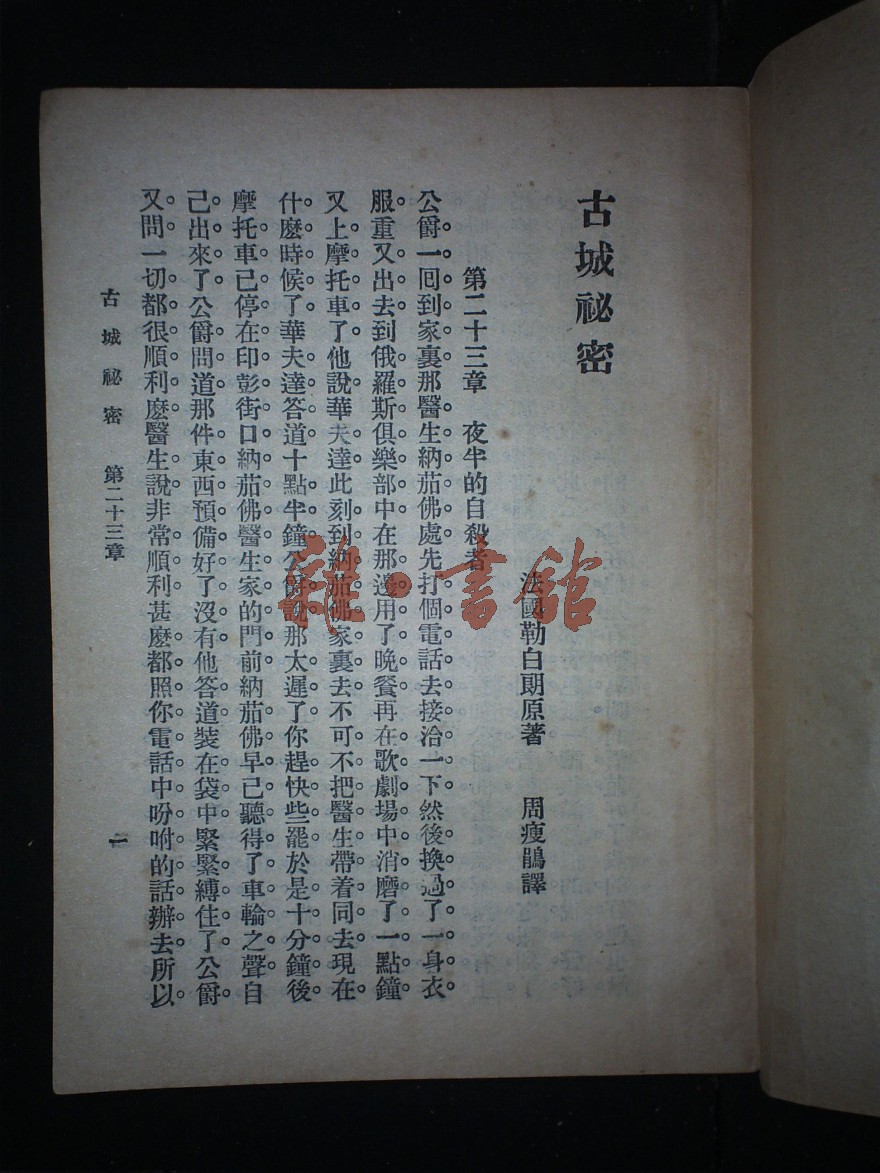 古城祕密
法國勒白朗原著 周瘦鵑譯
第二十三章 夜半的自殺者
公爵一回到家裏那醫生納茄佛處先打個電話去接洽一下然後換過了一身衣
服重又出去到俄羅斯俱樂部中在那邊用了晚餐再在歌劇場中消磨了一點鐘
又上摩托車了他說華夫達此刻到納茄佛家裏去不可不把醫生帶着同去現在
什麼時候了華夫達答道十點半鐘公爵說那太遲了你趕快些罷於是十分鐘後
摩托車已停在印彭街口納茄佛醫生家的門前納茄佛早已聽得了車輪之聲自
己出來了公爵問道那件東西預備好了沒有他答道裝在袋中緊緊縛住了公爵
又問一切都很順利麽醫生說非常順利甚麽都照你電話中吩咐的話辦去所以
古城祕密 第二十三章 一
雜·書館